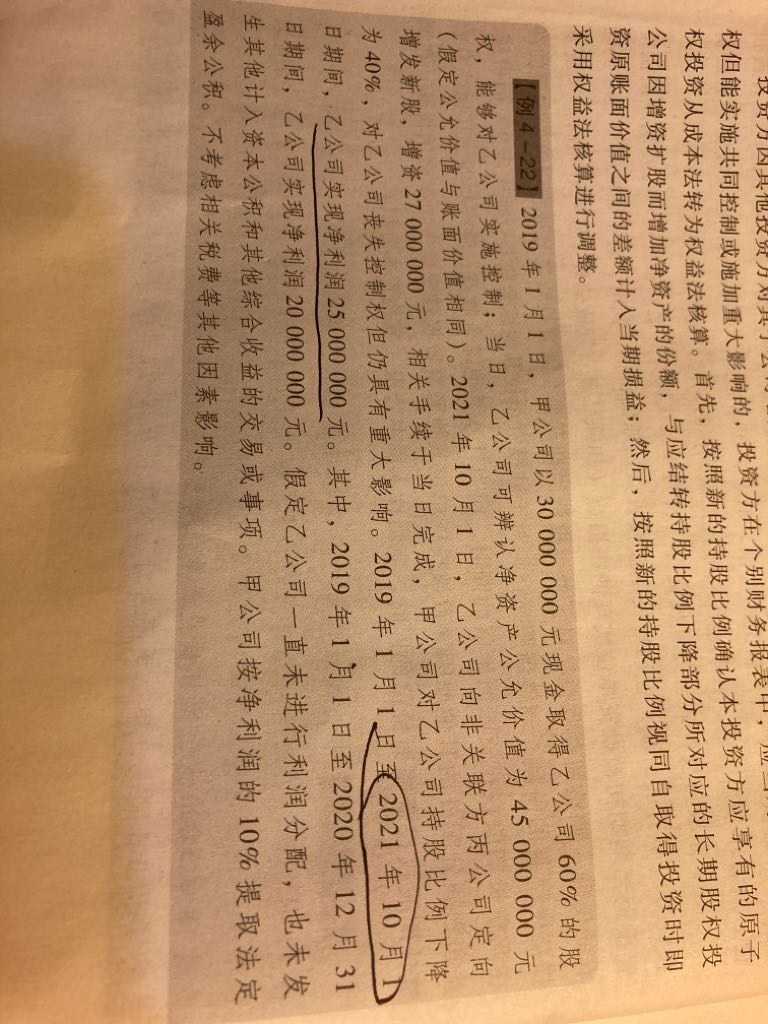 投资方因其他投资方对其子公司
权但能实施共同控制或施加重大影响的，投资方在个别财务报表中，应当
权投资从成本法转为权益法核算。首先，按照新的持股比例确认本投资方应享有的原子
公司因增资扩股而增加净资产的份额，与应结转持股比例下降部分所对应的长期股权投
资原账面价值之间的差额计入当期损益；然后，按照新的持股比例视同自取得投资时即
采用权益法核算进行调整。
【例4-22】2019年1月1日，甲公司以30 000 000元现金取得乙公司60%的股
权，能够对乙公司实施控制；当日，乙公司可辨认净资产公允价值为45 000 000元
（假定公允价值与账面价值相同）。2021年10月1日，乙公司向非关联方丙公司定向
增发新股，增资27 000 000元，相关手续于当日完成，甲公司对乙公司持股比例下降
为40%，对乙公司丧失控制权但仍具有重大影响。2019年1月1日至2021年10月1
日期间，乙公司实现净利润25 000 000元。其中，2019年1月1日至2020年12月31
日期间，乙公司实现净利润20 000 000元。假定乙公司一直未进行利润分配，也未发
生其他计入资本公积和其他综合收益的交易或事项。甲公司按净利润的10%提取法定
盈余公积。不考虑相关税费等其他因素影响。